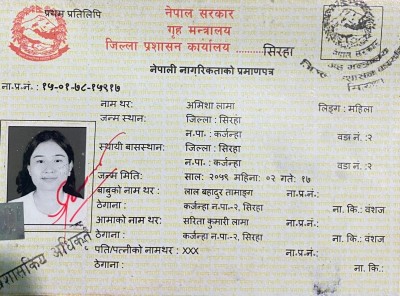 प्रथम प्रतिलिपि
नेपाल सरकार
गृह मन्त्रालय
जिल्ला प्रशासन कार्यालय ..........सिरहा
नेपाली नागरिकताको प्रमाणपत्र
ना.प्र.नं. : १५-०१-७८-१५९१७
नाम थर: अमिशा लामा लिङ्ग : महिला
जन्म स्थान : जिल्ला : सिरहा
न.पा. : कर्जन्हा वडा नं. :२
स्थायी बासस्थान: जिल्ला : सिरहा
न.पा. : कर्जन्हा वडा नं. :२
जन्म मिति: साल: २०५९ महिना: ०२ गते: १७
बाबुको नाम थर : लाल बहादुर तामाङ्ग ना.प्र.नं.:
ठेगाना : कर्जन्हा न.पा.-२, सिरहा ना. कि.: वंशज
आमाको नाम थर: सरिता कुमारी लामा ना.प्र.नं.:
ठेगाना: कर्जन्हा न.पा.-२, सिरहा ना. कि.: वंशज
पति/पत्नीको नामथर : XXX ना.प्र.नं.:
ठेगाना : ना. कि.: